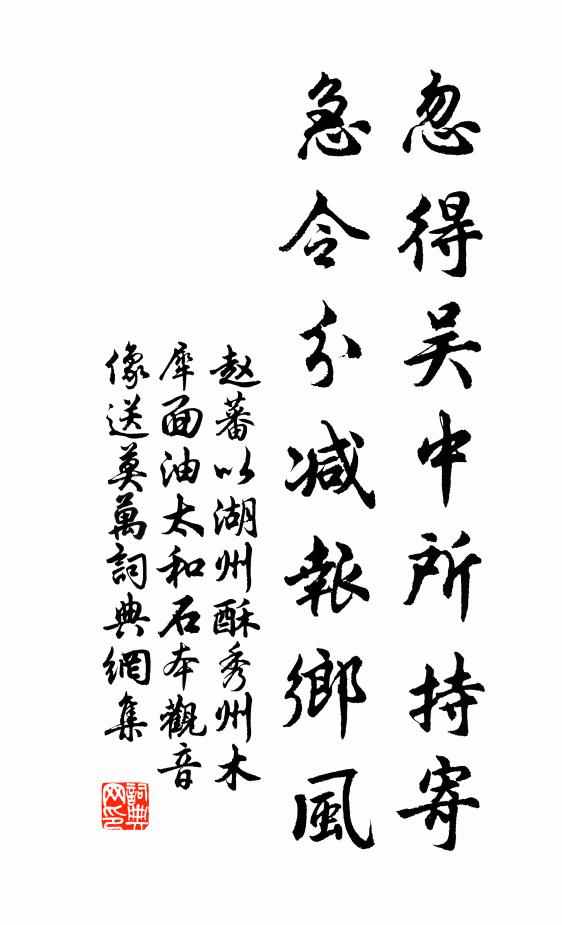 忽得吴中所持寄
急令分减報鄉風
赵蕃以湖州酥秀州木
犀面油太和石本觀音
像送莫萬詞典網集
詞典网印